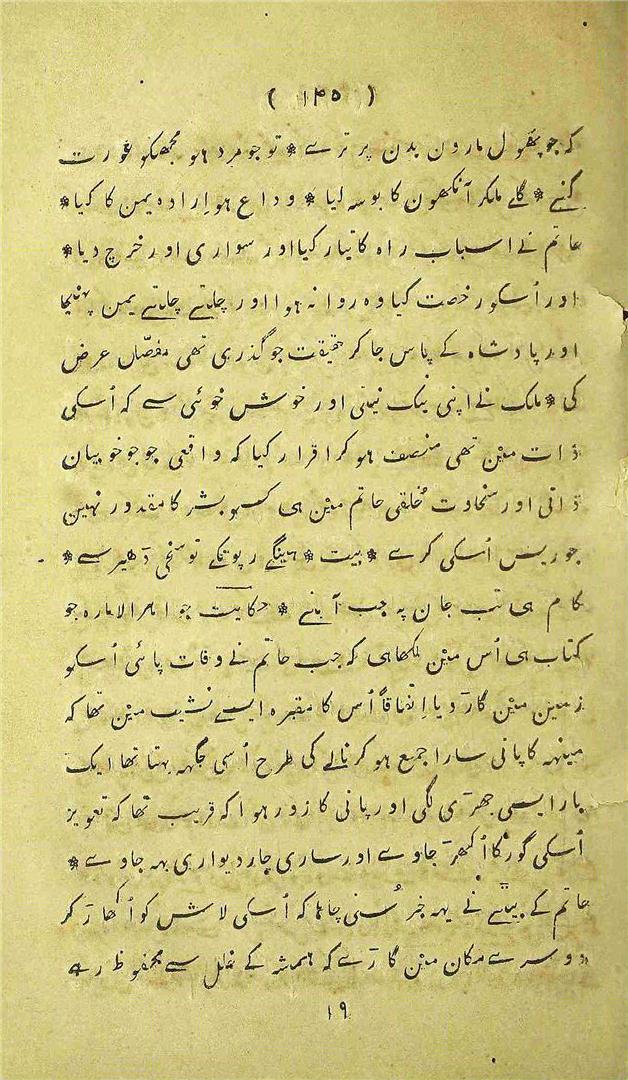 ( ۱۴۵ )
کہ جو پھول مارون بدن پر ترے * تو جو مرد ہو مجھکو عورت
گنے * گلے ملکر آنکھون کا بوسہ لیا * وداع ہو اِرادہ یمن کا کیا *
حاتم نے اسباب راہ کا تیار کیا اور سواری اور خرچ دیا *
اور اُسکو رخصت کیا وہ روانہ ہوا اور چلتے چلتے یمن پہنچا
اور پادشاہ کے پاس جا کر حقیقت جو گذری تھی مفصّل عرض
کی * ملک نے اپنی نیک نیتی اور خوش خوئی سے کہ اُسکی
ذات مین تھی منصف ہو کر اقرار کیا کہ واقعی جو جو خوبیان
ذاتی اور سخاوت خُلقی حاتم مین ہی کسو بشر کا مقدور نہین
جو ریس اُسکی کرے * بیت * دینگے رپوتکے تو سخی ڈھیر سے *
کام ہی تب جان پہ جب آ بنے * حکایت جوامرالامارہ جو
کتاب ہی اُس مین لکھا ہی کہ جب حاتم نے وفات پائی اُسکو
زمین مین گاڑ دیا اِتفاقاً اُس کا مقبرہ ایسے نشیب مین تھا کہ
مینہہ کا پانی سارا جمع ہو کر نالے کی طرح اُسی جگہہ بہتا تھا ایک
بار ایسی جھڑی لگی اور پانی کا زور ہوا کہ قریب تھا کہ تعویز
اُسکی گور کا اُکھڑ جاوے اور ساری چار دیواری بہہ جاوے *
حاتم کے بیٹے نے یہہ خبر سُنی چاہا کہ اُسکی لاش کو اُکھاڑ کر
دوسرے مکان مین گاڑے کہ ہمیشہ کے خلل سے محفوظ رہے
۱۹